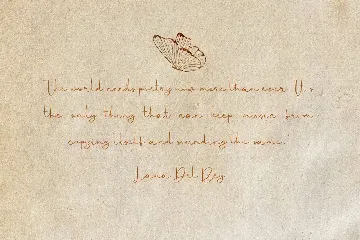 The world needs poetry now more than ever. It's
the only thing that can keep music from
copying itself and sounding the same.
Lana Del Rey